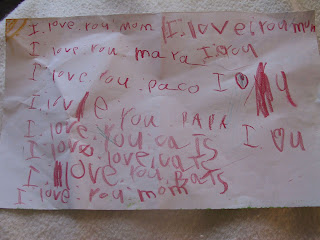 I.love.you.mom I.love.you mom
I love.you.mara I.you
I love.you.paco I
I love.you.PAPA
I.love.you caTS I ♡ u
I love.love.caTS
I.love.you.RaTS
I love.you.mom